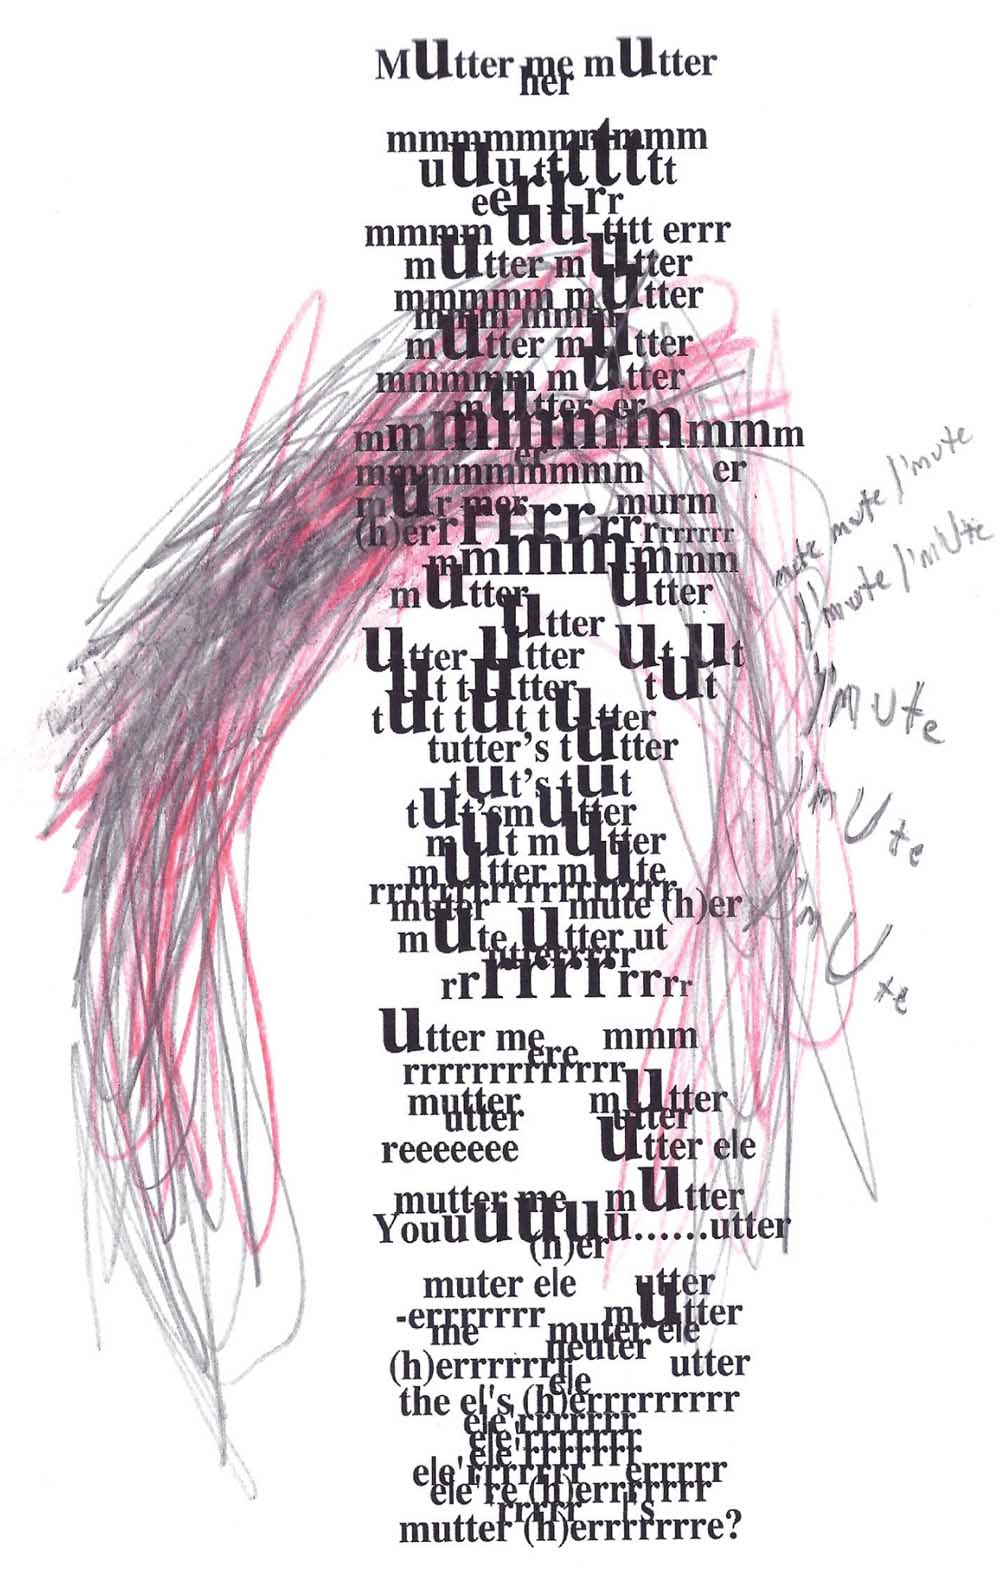 Mutter me mutter
her
mmmmmmmtmmm
uuututttttt
eerrrrr
mmmm uu tttt errr
mutter mutter
mmmmmm mutter
mmm mmmm
mutter mutter
mmmmmm mutter
mutter er
mmmmmmmmmmm
er
mmmmmmmmmm er
mur mer murm
(h)errrrrrrrrrrrrrr
mmmmmmmmm
mutter utter
utter
utter utter ut ut
tut tutter tut
tut tut tutter
tutter's tutter
tut's tut
tut'smutter
mut mutter
mutter mute
rrrrrrrrrrrrrrrrrrrr
muter mute (h)er
mute utter ut
utterrrrr
rrrrrrrrrrr
utter me mmm
ere
rrrrrrrrrrrrr
mutter mutter
utter utter
reeeeeee utter ele
mutter me mutter
Youuuuuuu......utter
(h)er
muter ele utter
-errrrrrr mutter
me muter ele
neuter
(h)errrrrrr utter
ele
the el's (h)errrrrrrrrr
ele'rrrrrrr
ele'rrrrrrr
ele'rrrrrrr
ele'rrrrrrr errrrr
ele're (h)errrrrrr
rrrrr l's
mutter (h)errrrrrre?
mute mute / I'mute
I'mute / I'mUte
I'mUte
I'mUte
I'mUte